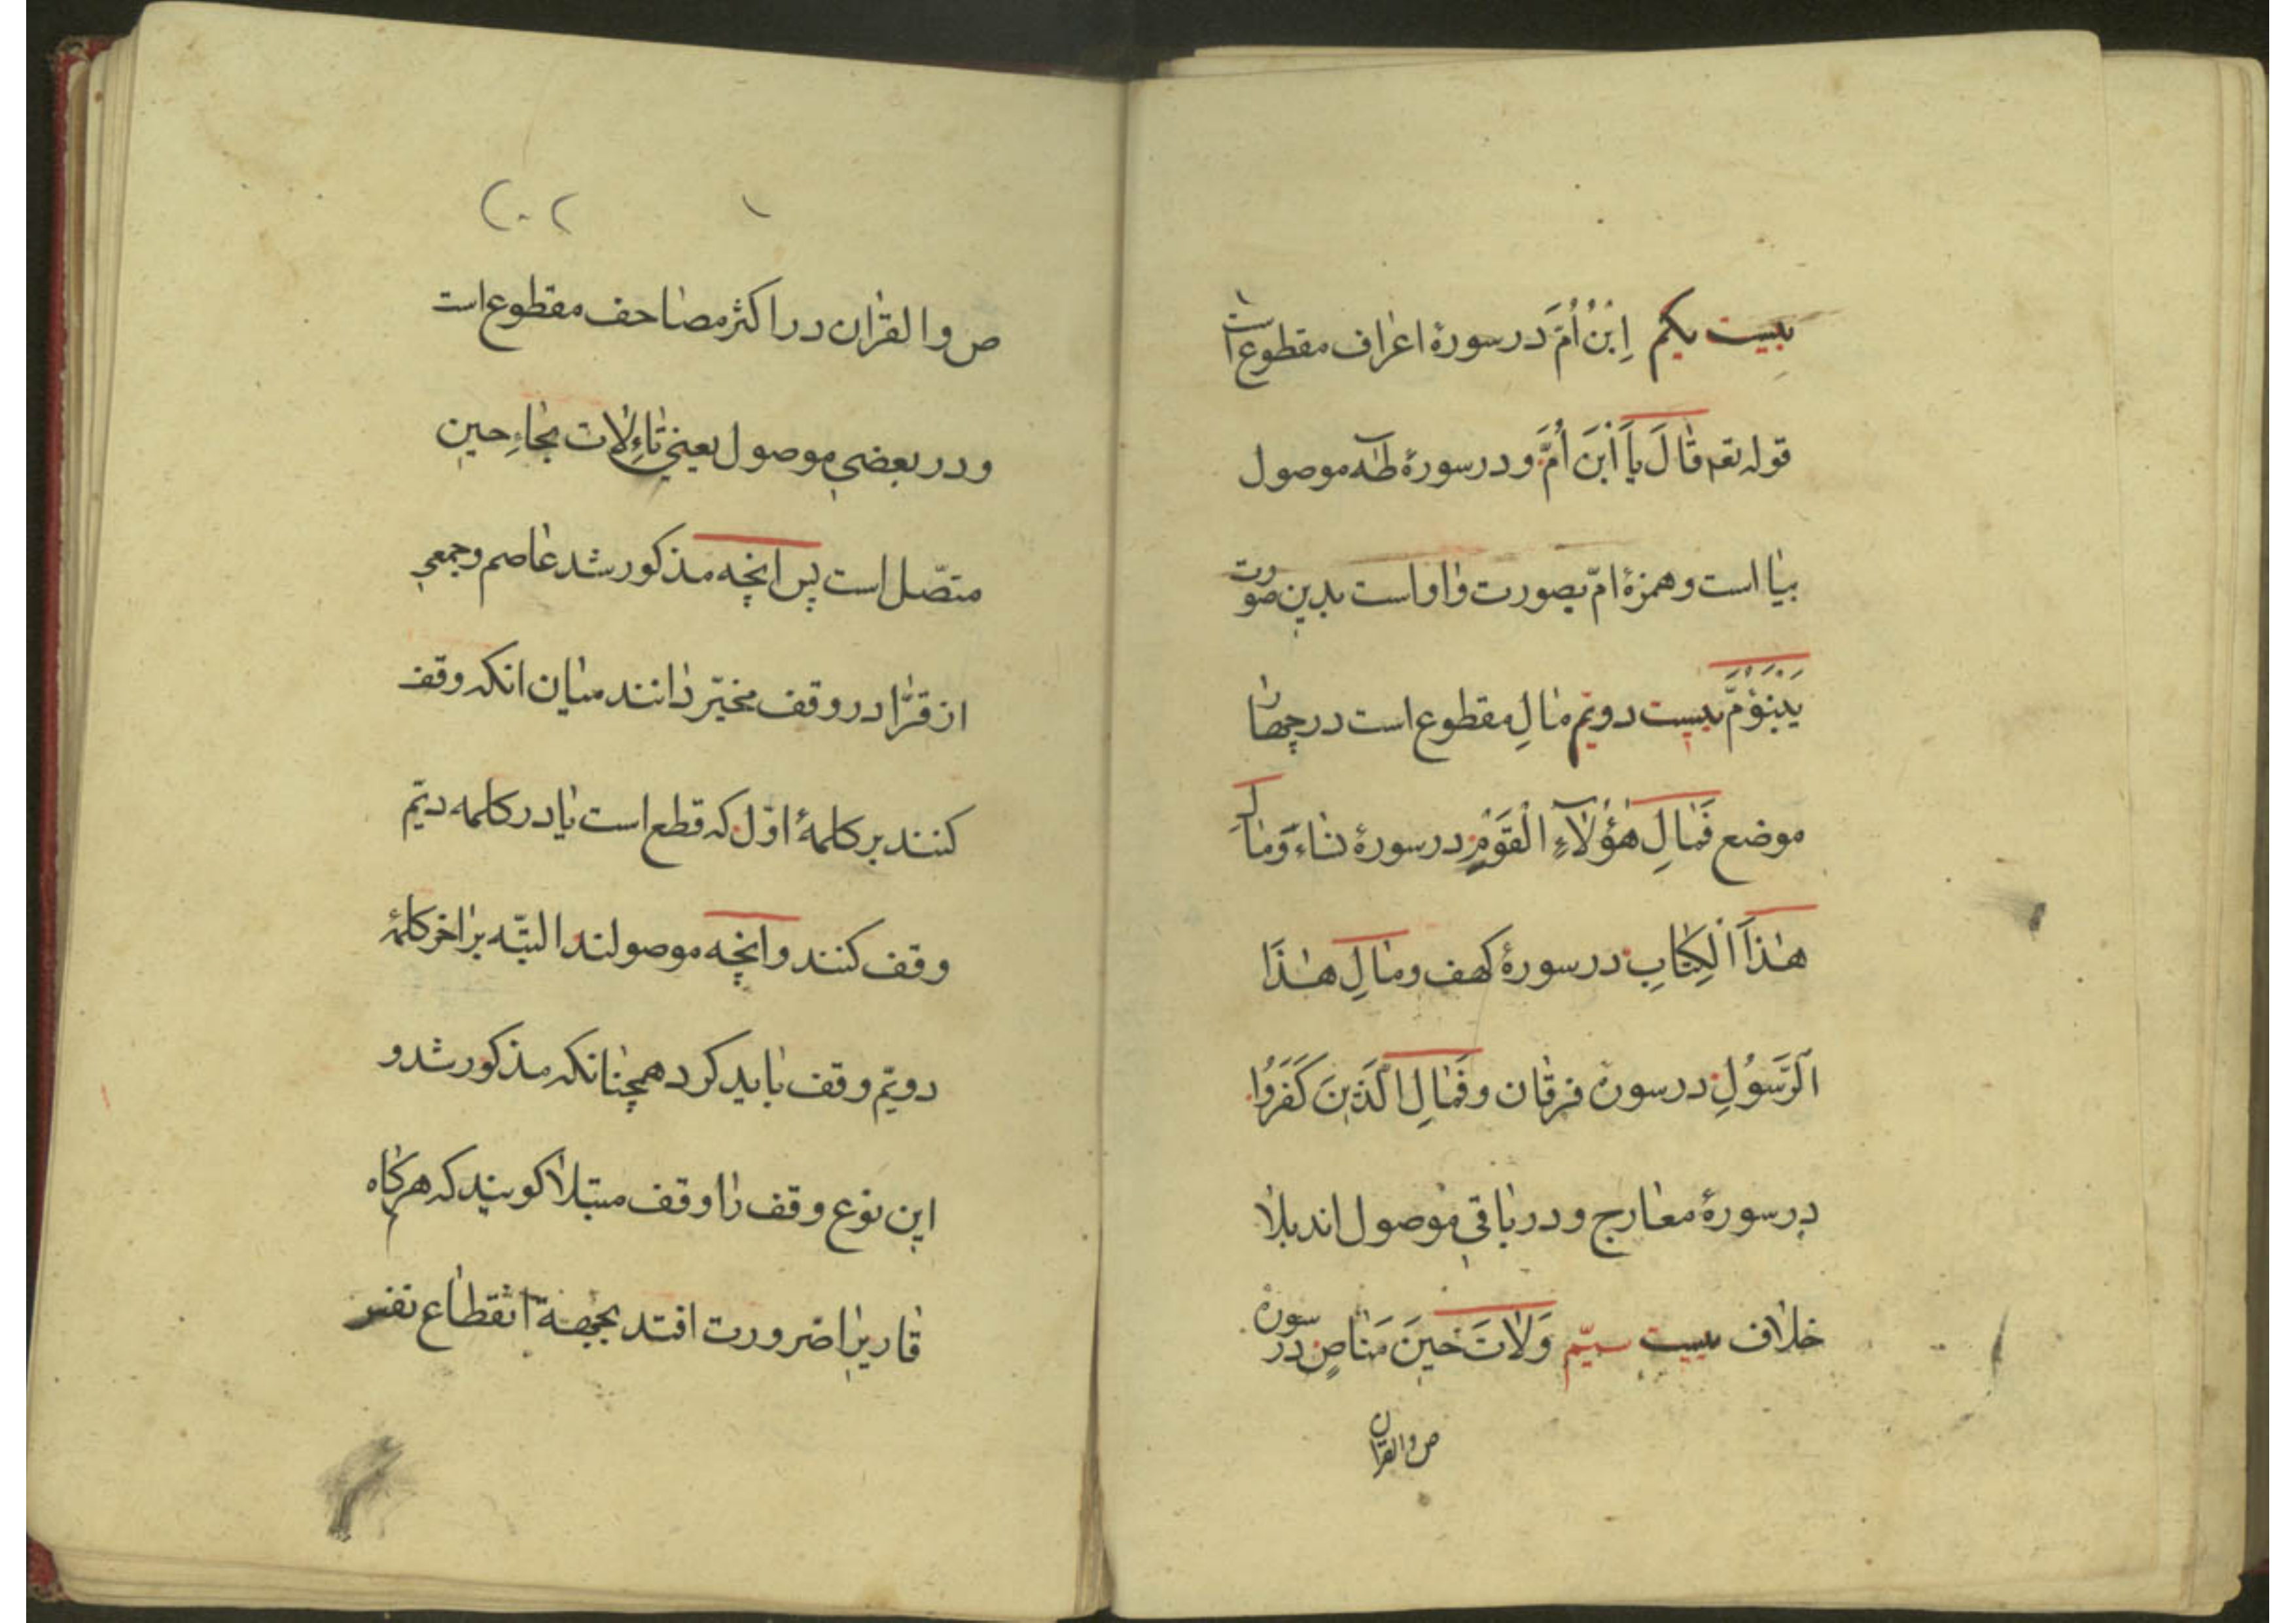 بیست یکم اِبْنُ اُمَّ در سورهٔ اعراف مقطوع است
قوله تعه قَالَ یَا اَبْنَ اُمَّ و در سورهٔ طٰه موصول
بیا است و همزهٔ امّ بصورت واو است بدین صورت
یَبْنَؤُمَّ بیست دویّم مالِ مقطوع است در چهار
موضع فَمَالِ هٰؤُلَآءِ الْقَوْمِ در سورهٔ نساء وَمَالِ
هٰذَا الْكِتَابِ در سورهٔ کهف و مَالِ هٰذَا
الرَّسُولِ در سوره فرقان و فَمَالِ الَّذِینَ كَفَرُوا
در سورهٔ معارج و در باقی موصول اند بلا
خلاف بیست سیّم وَلَاتَ حِینَ مَنَاصٍ در سوره
ص والقران
۲۰۲
ص والقران در اکثر مصاحف مقطوع است
و در بعضی موصول یعنی تاءِ لات بحاءِ حین
متصّل است پس انچه مذکور شد عاصم و جمعی
از قرّا در وقف مخیّر دانند میان انکه وقف
کنند بر کلمهٔ اوّل که قطع است یا در کلمه دیّم
وقف کنند و انچه موصولند البتّه بر اخر کلمهٔ
دویّم وقف باید کرد همچنانکه مذکور شد و
این نوع وقف را وقف مبتلا کویند که هرکاه
قاریرا ضرورت افتد بجهة انقطاع نفس